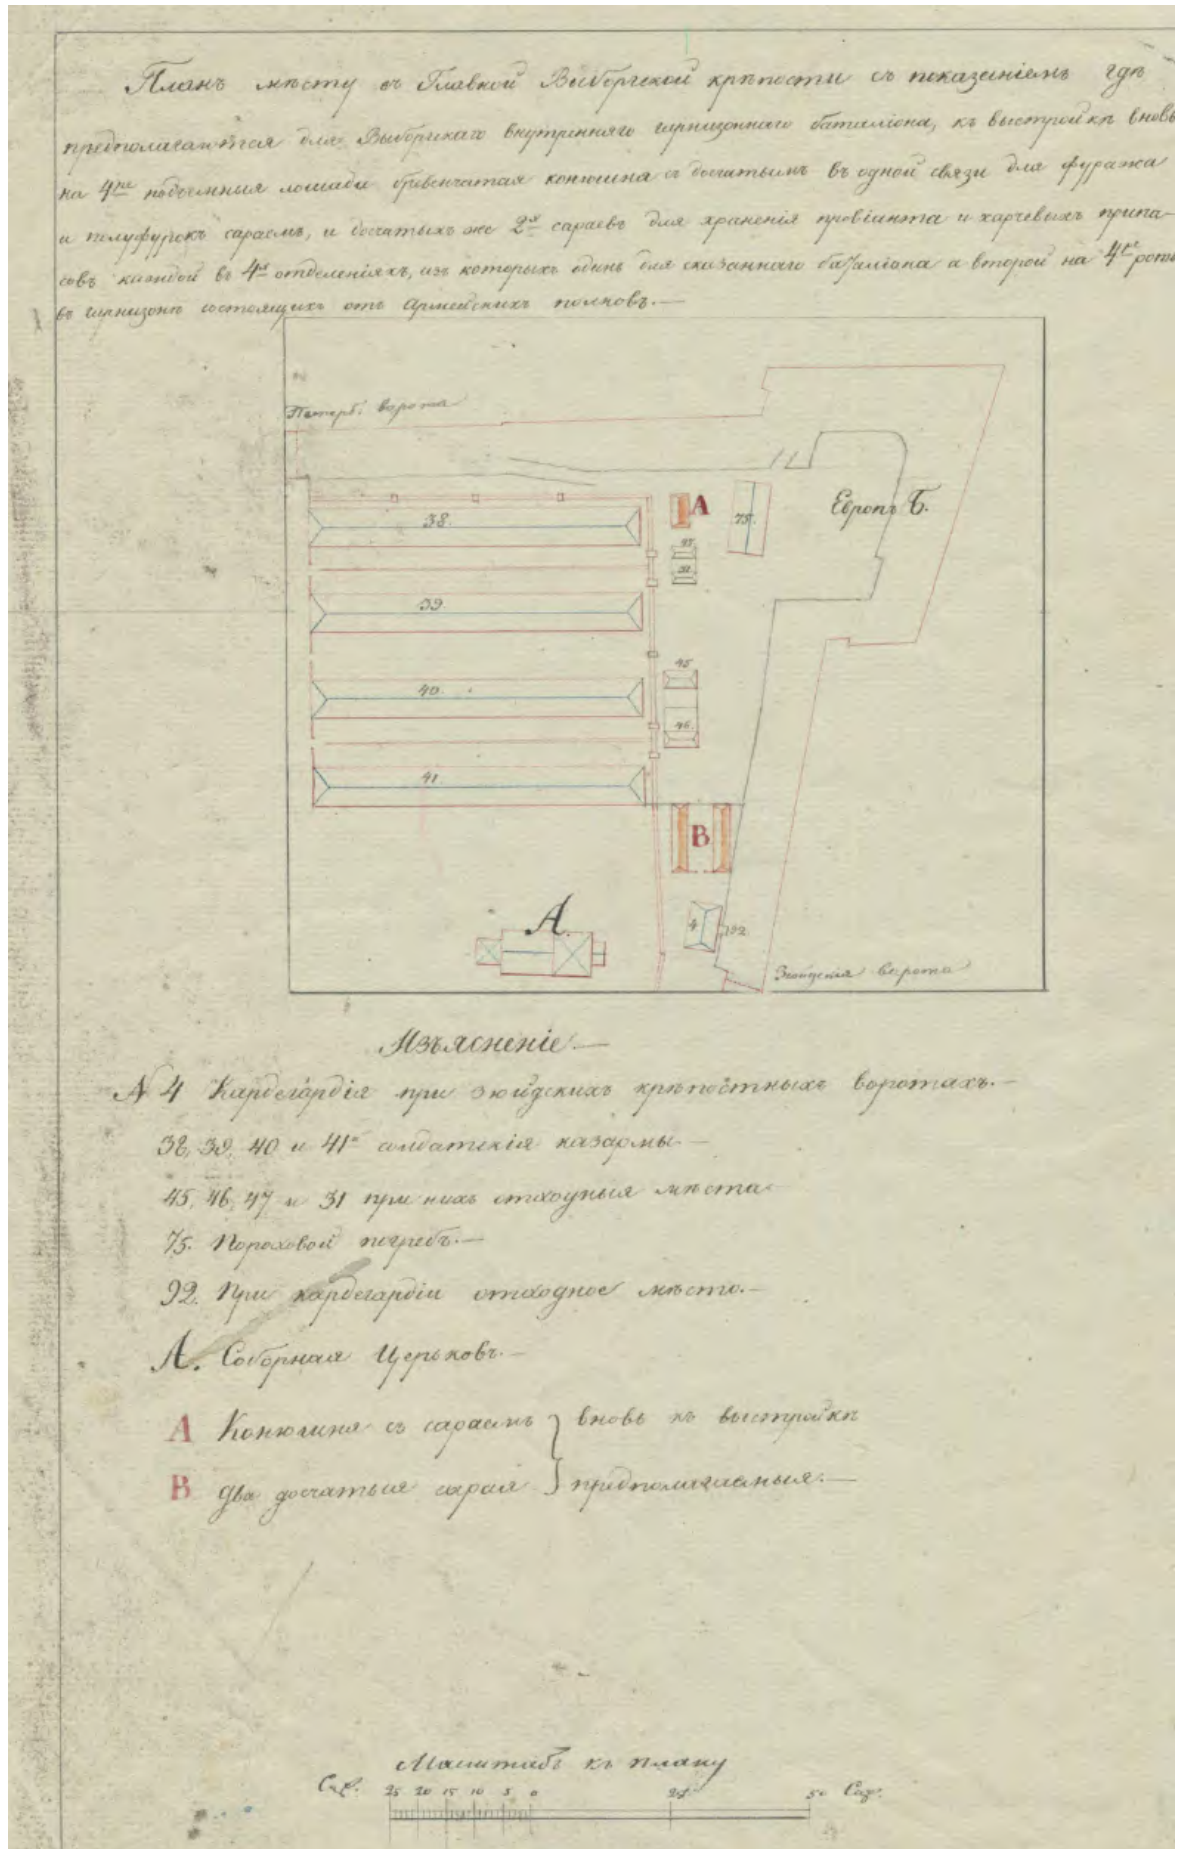 Планъ мѣсту въ Главной Выборгской крѣпости съ показаніемъ гдѣ
предполагаются для Выборгскаго внутренняго гарнизоннаго баталіона, къ выстройкѣ вновь
на 4ре подъемныя лошади бревенчатая конюшна съ досчатымъ въ одной связи для фуража
и полуфурокъ сараемъ, и досчатыхъ же 2хъ сараевъ для храненія провіанта и харчевыхъ припа-
совъ каждой въ 4хъ отделеніяхъ, изъ которыхъ одинъ для сказаннаго баталіона а второй на 4ре роты
въ гарнизонѣ состоящихъ отъ Армейскихъ полковъ.—
Петерб: варота
38.
A
75.
Европъ Б.
47
32
39.
45
40.
46.
41.
B
A.
4
92
Зюйдския варота
Изъясненіе.—
№ 4 Кардегардія при зюйдскихъ крѣпостныхъ воротахъ.—
38, 39, 40 и 41е солдатскія казармы.—
45, 46, 47 и 31 при нихъ отходныя мѣста
75. Пороховой погребъ.—
92. При кардегардіи отходное мѣсто.—
А. Соборная Церьковъ.—
A Конюшня съ сараемъ } вновь къ выстройкѣ
B два досчатыя сарая } предполагаемыя.—
Масштабъ къ плану
Саж. 25 20 15 10 5 0 25 50 Саж.